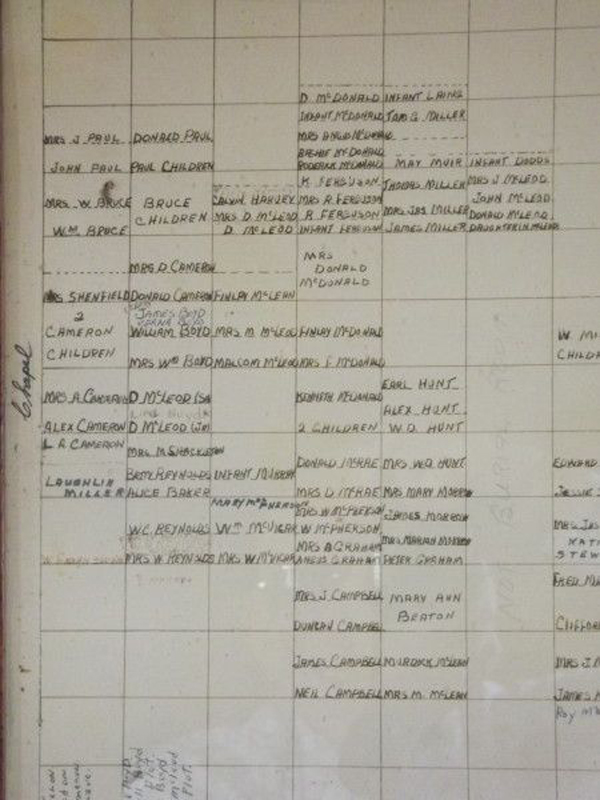 D McDONALD INFANT LAING
INFANT McDONALD TOM G. MILLER
MRS J PAUL DONALD PAUL MRS
JOHN PAUL PAUL CHILDREN RODERICK McDONALD MAY MUIR INFANT DODDS
K FERGUSON THOMAS MILLER MRS J McLEOD
MRS. W. BRUCE BRUCE CALVIN HARVEY MRS R FERGUSON JOHN McLEOD
CHILDREN MRS D McLEOD R. FERGUSON MRS JAS MILLER DONALD McLEOD
WM BRUCE D McLEOD INFANT FERGUSON JAMES MILLER DAUGHTER
MRS D CAMERON MRS
DONALD
McDONALD
MRS SHENFIELD DONALD CAMERON FINLAY McLEAN
2 JAMES BOYD
CAMERON WILLIAM BOYD MRS M McLEOD FINLAY McDONALD W. MI
CHILDREN CHILDR
MRS WM BOYD MALCOM McLEOD MRS F McDONALD
Chapel
EARL HUNT
MRS. A. CAMERON D McLEOD KENNETH McDONALD
ALEX HUNT
ALEX CAMERON D McLEOD 2 CHILDREN W.D. HUNT
L A CAMERON
MRS. M SHACKLETON
DONALD McRAE MRS W.D. HUNT EDWARD
REYNOLDS INFANT MURRAY
LAUGHLIN
MILLER ALICE BAKER MRS D McRAE MRS MARY MORROW JESSIE
MARY McPHERSON MRS W McPHERSON JAMES MORROW
W.C. REYNOLDS WM McVICAR W McPHERSON MRS MARIAN MORROW MRS JAS
MRS A GRAHAM KAT
MRS W. REYNOLDS MRS W McVICAR ANGUS GRAHAM PETER GRAHAM STEW
FRED
MRS J. CAMPBELL MARY ANN
BEATON
DUNCAN CAMPBELL CLIFFOR
JAMES CAMPBELL MURDOCK McLEAN MRS J
NEIL CAMPBELL MRS M. McLEAN JAMES
Roy
Boyd
Plot
Boyd
McLeod
Plot.